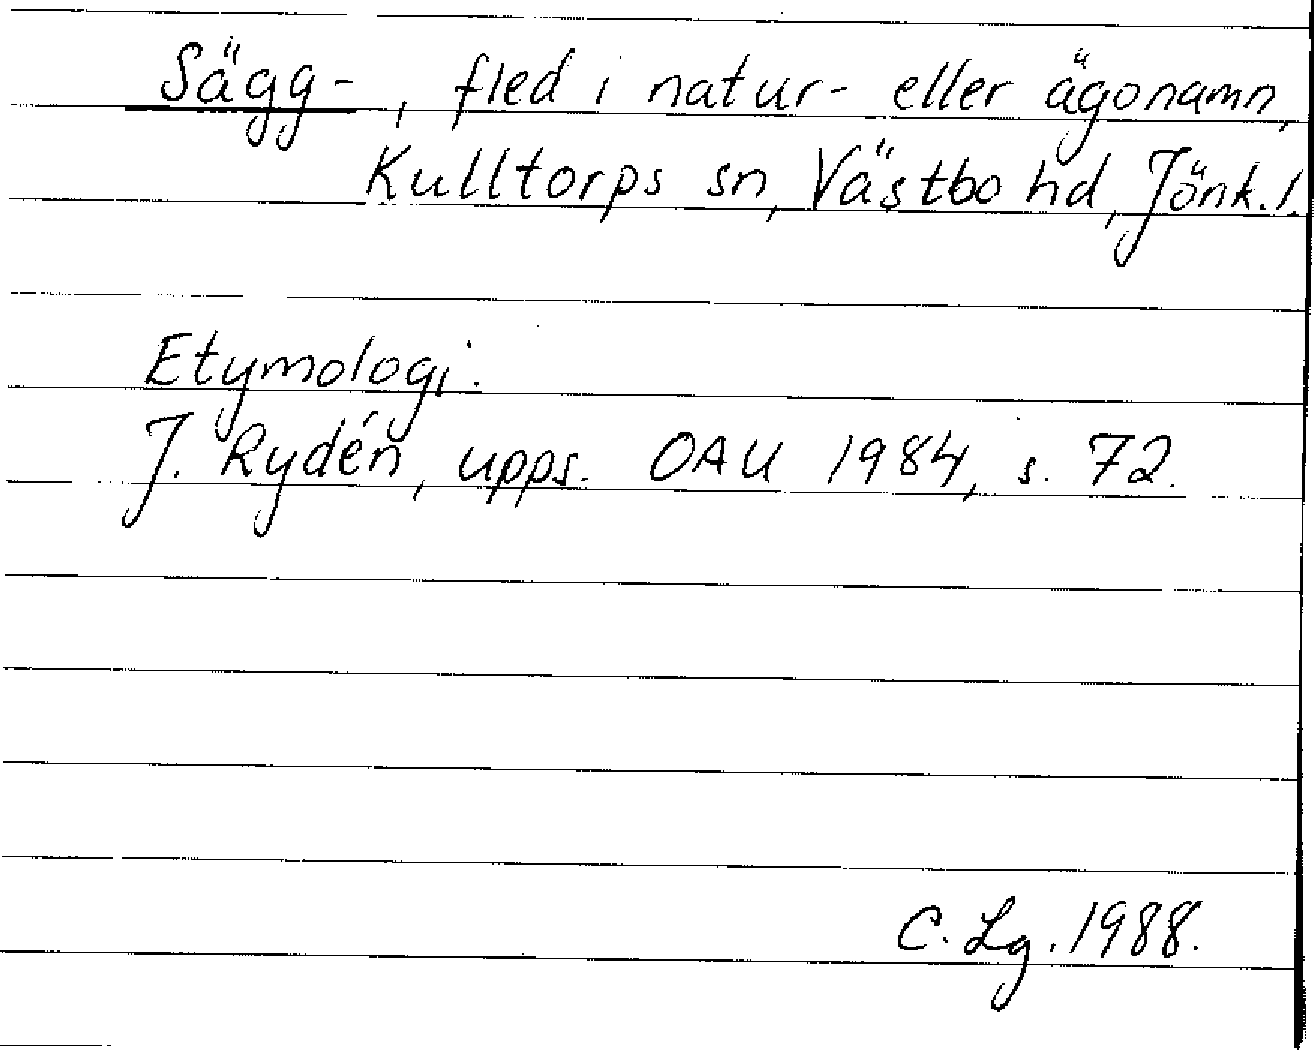 Sägg-, fled i natur- eller ägonamn,
Kulltorps sn, Västbo hd, Jönk. l.
Etymologi:
J. Rydén, upps. OAU 1984, s. 72.
C. Lg. 1988.